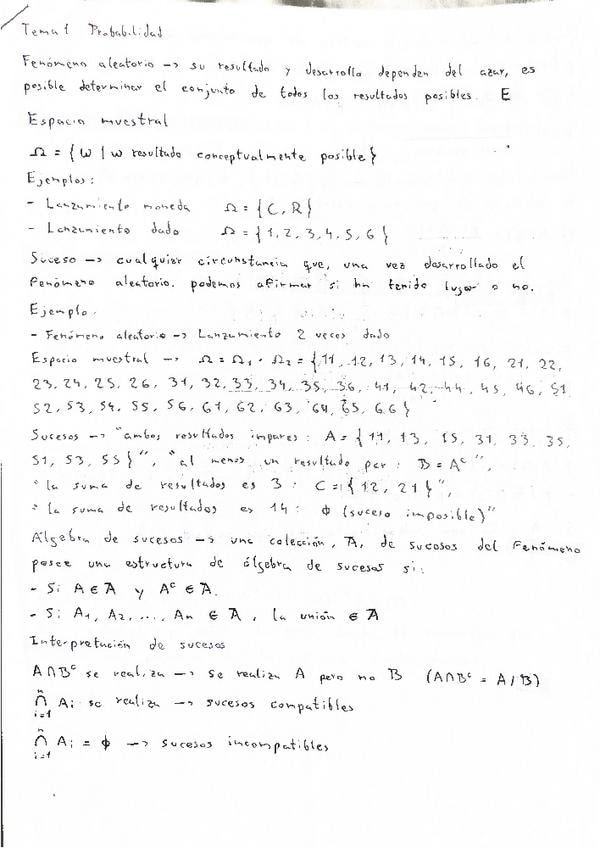 Tema 1 Probabilidad
Fenómeno aleatorio → su resultado y desarrollo dependen del azar, es
posible determinar el conjunto de todos los resultados posibles. E
Espacio muestral
Ω = {ω | ω resultado conceptualmente posible}
Ejemplos:
- Lanzamiento moneda Ω = {C, R}
- Lanzamiento dado Ω = {1, 2, 3, 4, 5, 6}
Suceso → cualquier circunstancia que, una vez desarrollado el
fenómeno aleatorio. podemos afirmar si ha tenido lugar o no.
Ejemplo:
- Fenómeno aleatorio → Lanzamiento 2 veces dado
Espacio muestral → Ω = Ω₁ · Ω₂ = {11, 12, 13, 14, 15, 16, 21, 22,
23, 24, 25, 26, 31, 32, 33, 34, 35, 36, 41, 42, 44, 45, 46, 51
52, 53, 54, 55, 56, 61, 62, 63, 64, 65, 66}
Sucesos → "ambos resultados impares: A = {11, 13, 15, 31, 33, 35,
51, 53, 55}", "al menos un resultado par: B = Aᶜ",
"la suma de resultados es 3: C = {12, 21}",
"la suma de resultados es 14: ϕ (suceso imposible)"
Álgebra de sucesos → una colección, A, de sucesos del fenómeno
posee una estructura de álgebra de sucesos si:
- Si A ∈ A y Aᶜ ∈ A.
- Si A₁, A₂, ..., An ∈ A, la unión ∈ A
Interpretación de sucesos
A∩Bᶜ se realiza → se realiza A pero no B (A∩Bᶜ = A/B)
ⁿ∩ᵢ₌₁ Aᵢ se realiza → sucesos compatibles
ⁿ∩ᵢ₌₁ Aᵢ = ϕ → sucesos incompatibles